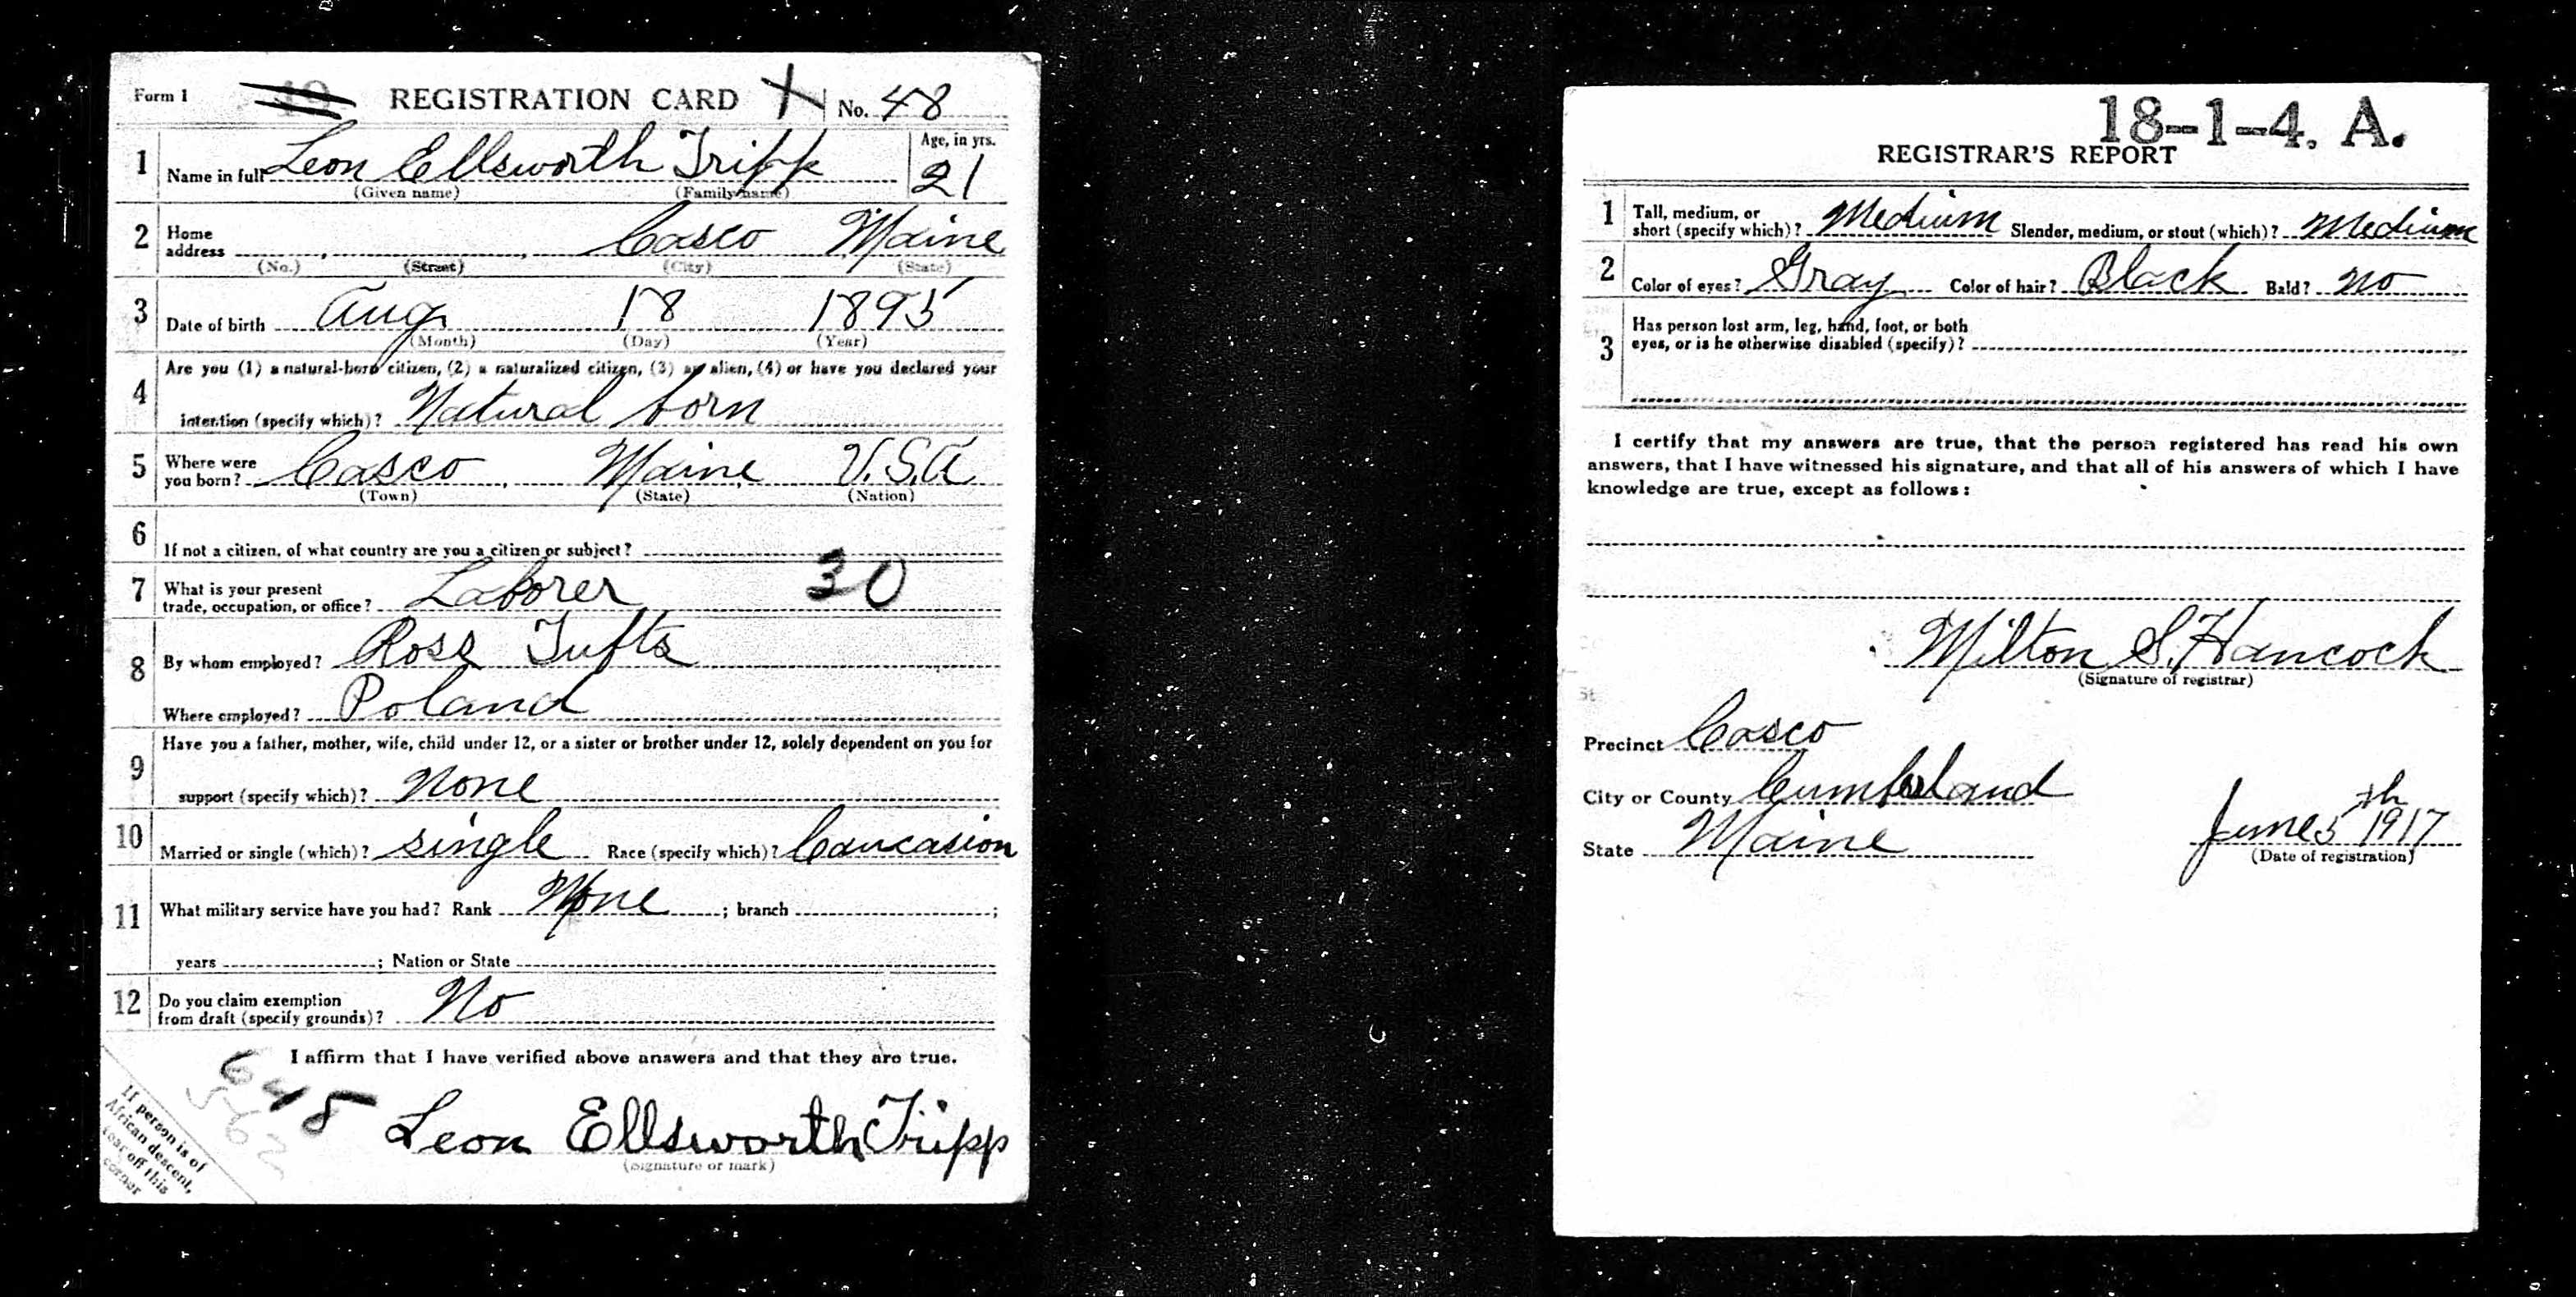 Form 1 REGISTRATION CARD X No. 48
1 Name in full Leon Ellsworth Tripp Age, in yrs. 21
(Given name) (Family name)
2 Home address Casco Maine
(No.) (Street) (City) (State)
3 Date of birth Aug 18 1895
(Month) (Day) (Year)
4 Are you (1) a natural-born citizen, (2) a naturalized citizen, (3) an alien, (4) or have you declared your
intention (specify which)? Natural born
5 Where were you born? Casco Maine U.S.A
(Town) (State) (Nation)
6 If not a citizen, of what country are you a citizen or subject?
7 What is your present trade, occupation, or office? Laborer 30
8 By whom employed? Ross Tufts
Where employed? Poland
9 Have you a father, mother, wife, child under 12, or a sister or brother under 12, solely dependent on you for
support (specify which)? None
10 Married or single (which)? single Race (specify which)? Caucasion
11 What military service have you had? Rank None ; branch ;
years ; Nation or State
12 Do you claim exemption from draft (specify grounds)? No
I affirm that I have verified above answers and that they are true.
648
562
Leon Ellsworth Tripp
(Signature or mark)
If person is of
African descent,
tear off this
corner
18-1-4. A.
REGISTRAR'S REPORT
1 Tall, medium, or short (specify which)? Medium Slender, medium, or stout (which)? Medium
2 Color of eyes? Gray Color of hair? Black Bald? No
3 Has person lost arm, leg, hand, foot, or both
eyes, or is he otherwise disabled (specify)?
I certify that my answers are true, that the person registered has read his own
answers, that I have witnessed his signature, and that all of his answers of which I have
knowledge are true, except as follows:
Milton S. Hancock
(Signature of registrar)
Precinct Casco
City or County Cumberland
State Maine June 5th 1917
(Date of registration)